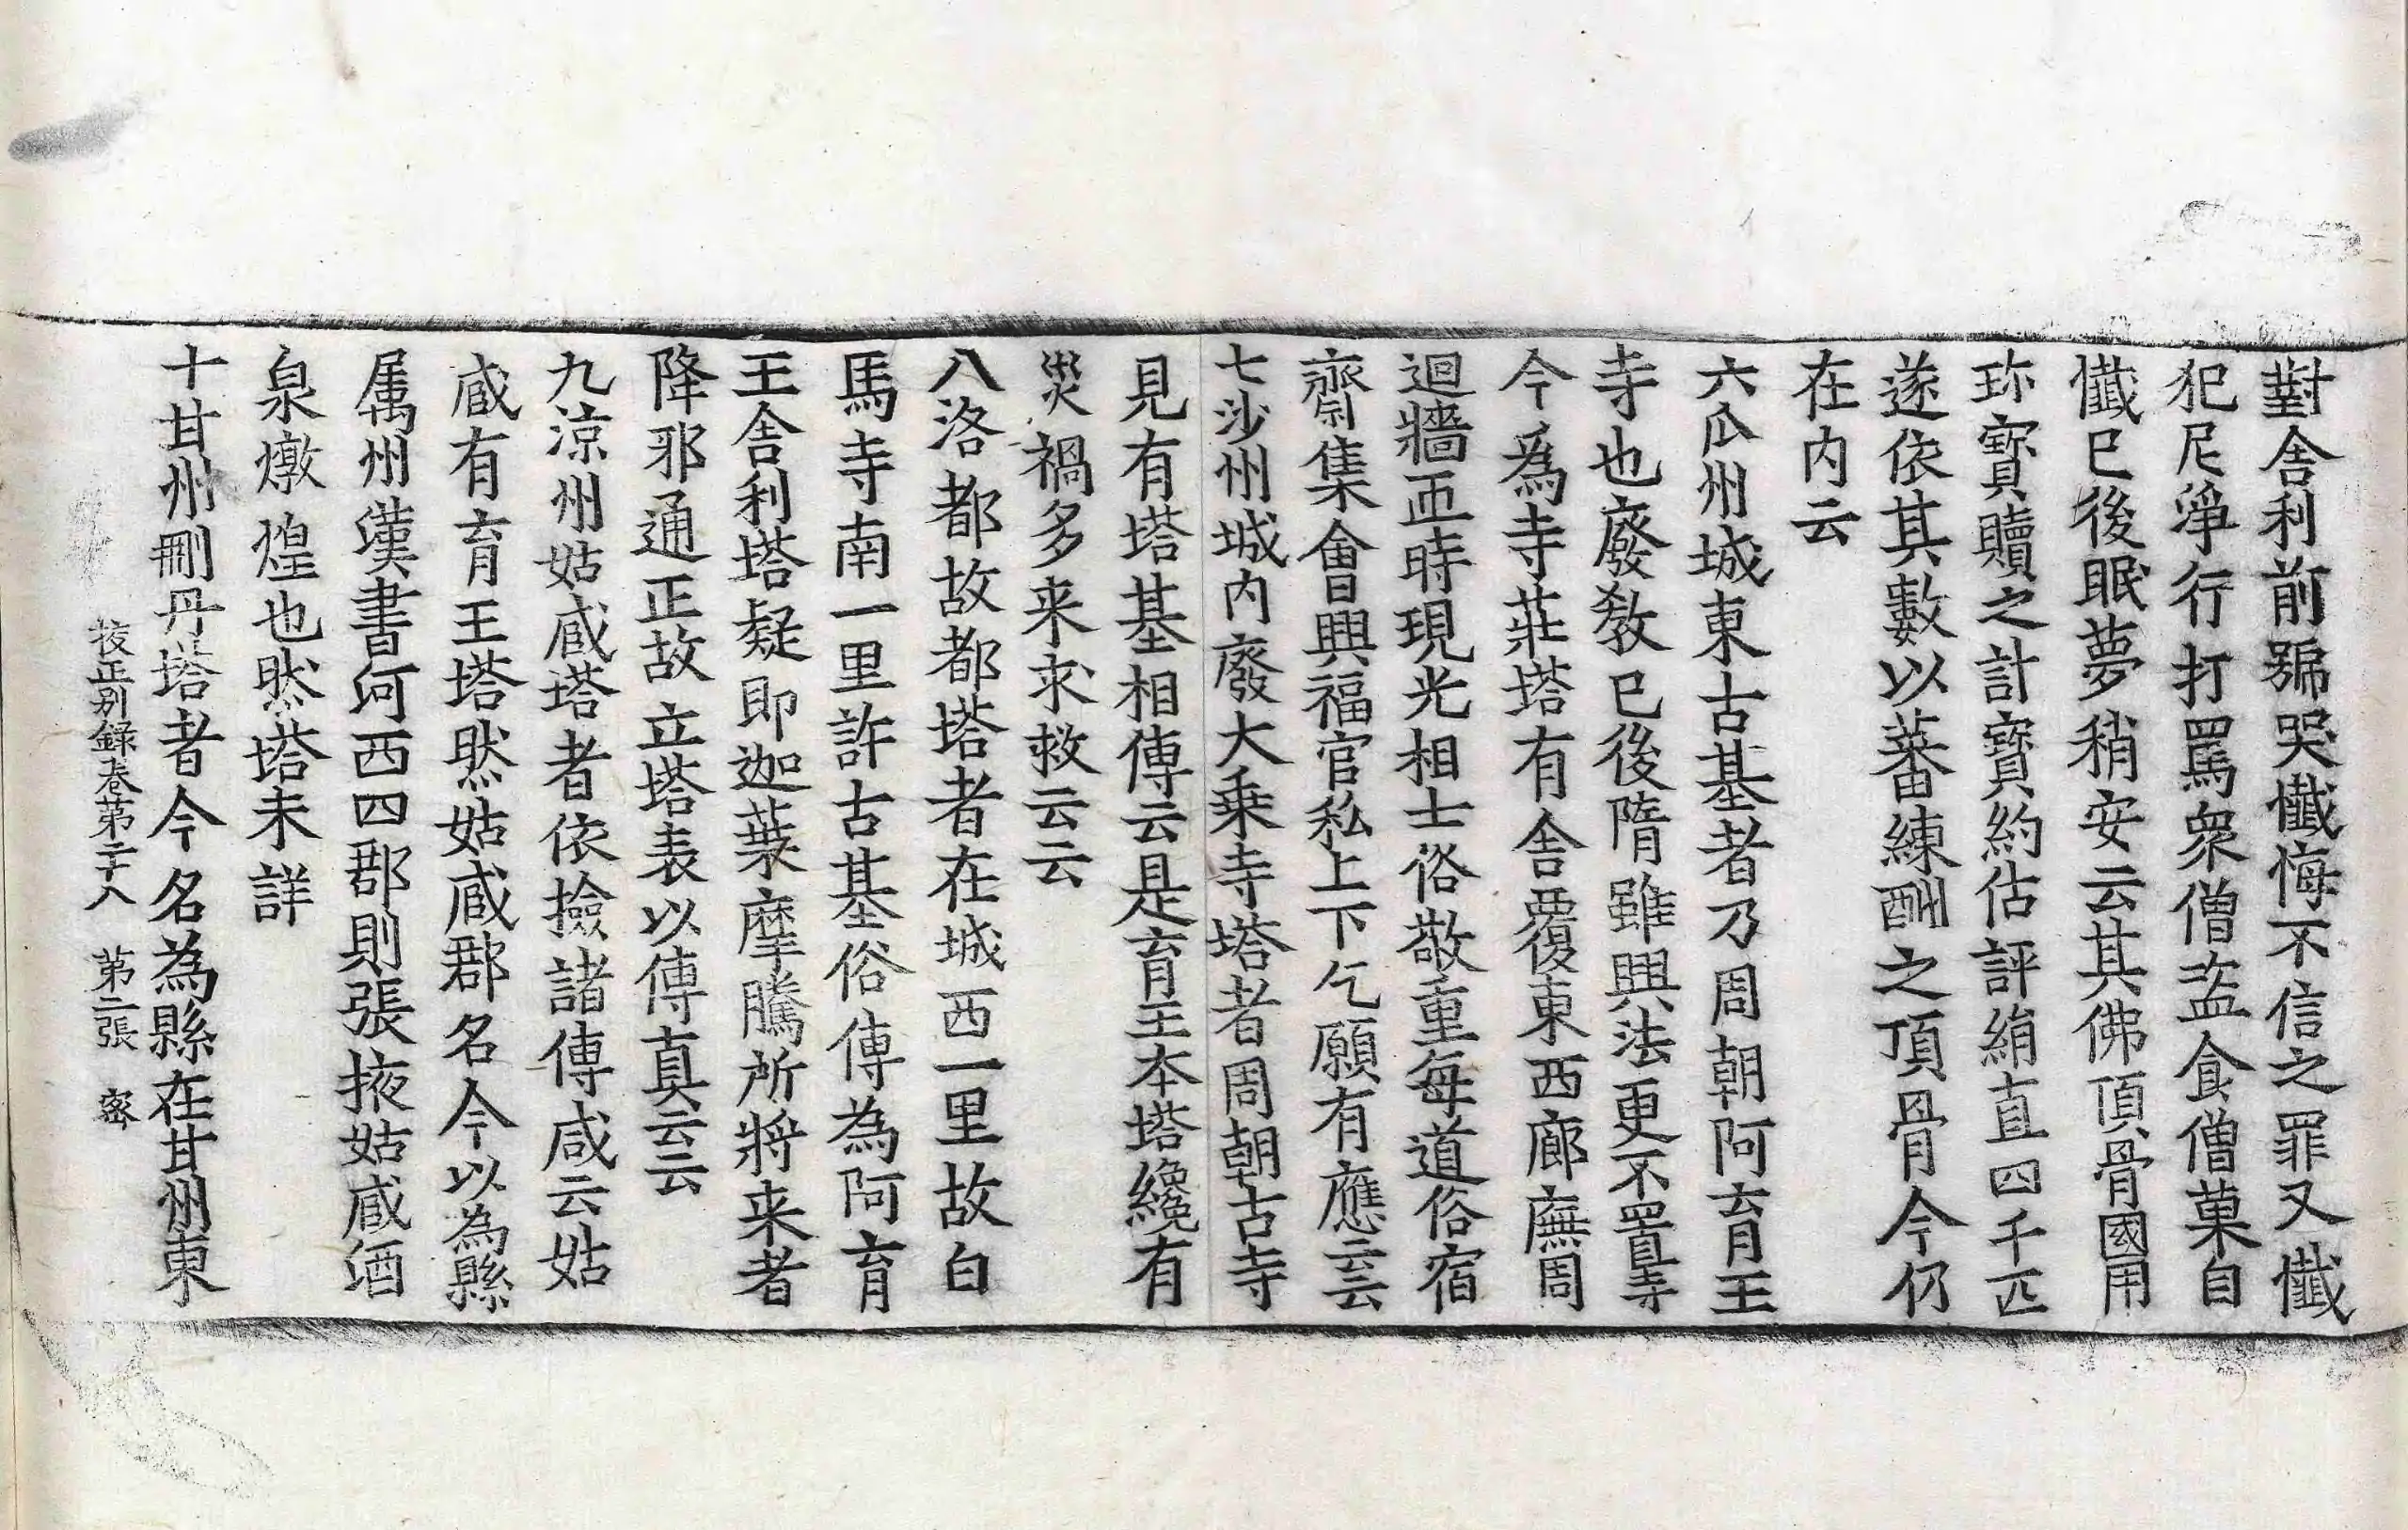 對舍利前號哭懺悔不信之罪又懺
犯尼淨行打罵衆僧盗食僧菓自
懺已後眠夢稍安云其佛頂骨國用
珎寶贖之計寶約估評絹直四千匹
遂依其數以蕃練酬之頂骨今仍
在内云
六瓜州城東古基者乃周朝阿育王
寺也廢敎已後隋雖興法更不置寺
今爲寺莊塔有舍覆東西廊廡周
迴牆匝時現光相士俗敬重每道俗宿
齋集會興福官私上下乞願有應云云
七沙州城内廢大乗寺塔者周朝古寺
見有塔基相傳云是育王本塔纔有
災禍多来求救云云
八洛都故都塔者在城西一里故白
馬寺南一里許古基俗傳為阿育
王舍利塔疑即迦葉摩騰所將来者
降邪通正故立塔表以傳真云云
九涼州姑臧塔者依撿諸傳咸云姑
臧有育王塔然姑臧郡名今以為縣
属州漢書河西四郡則張掖姑臧酒
泉燉煌也然塔未詳
十甘州刪丹塔者今名為縣在甘州東
挍正別録卷第二十八 第二張 密